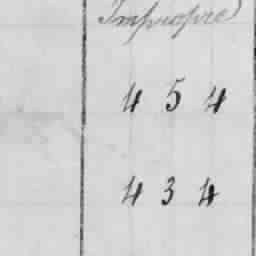 Impropre
4 5 4
4 3 4